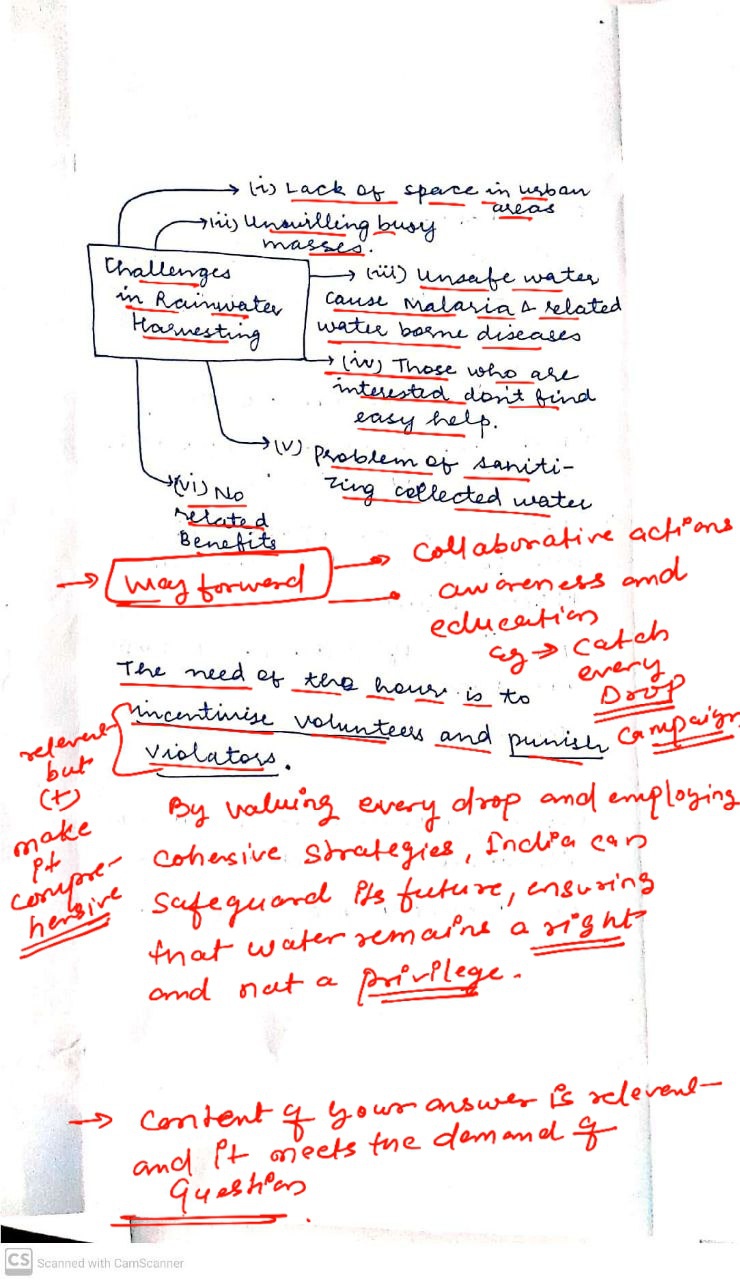 (i) Lack of space in urban
areas
(ii) Unwilling busy
masses.
Challenges
in Rainwater
Harvesting
(iii) Unsafe water
cause Malaria & related
water borne diseases
(iv) Those who are
interested don't find
easy help.
(v) Problem of saniti-
zing collected water
(vi) No
related
Benefits
→ Way forward
Collaborative actions
awareness and
education
eg → Catch
every
Drop
Campaign
The need of the hour is to
incentivise volunteers and punish
violators.
relevent
but
(+)
make
it
compre-
hensive
By valuing every drop and employing
cohensive strategies, India can
safeguard its future, ensuring
that water remains a right
and not a privilege.
→ Content of your answer is relevent
and it meets the demand of
question.
CS Scanned with CamScanner